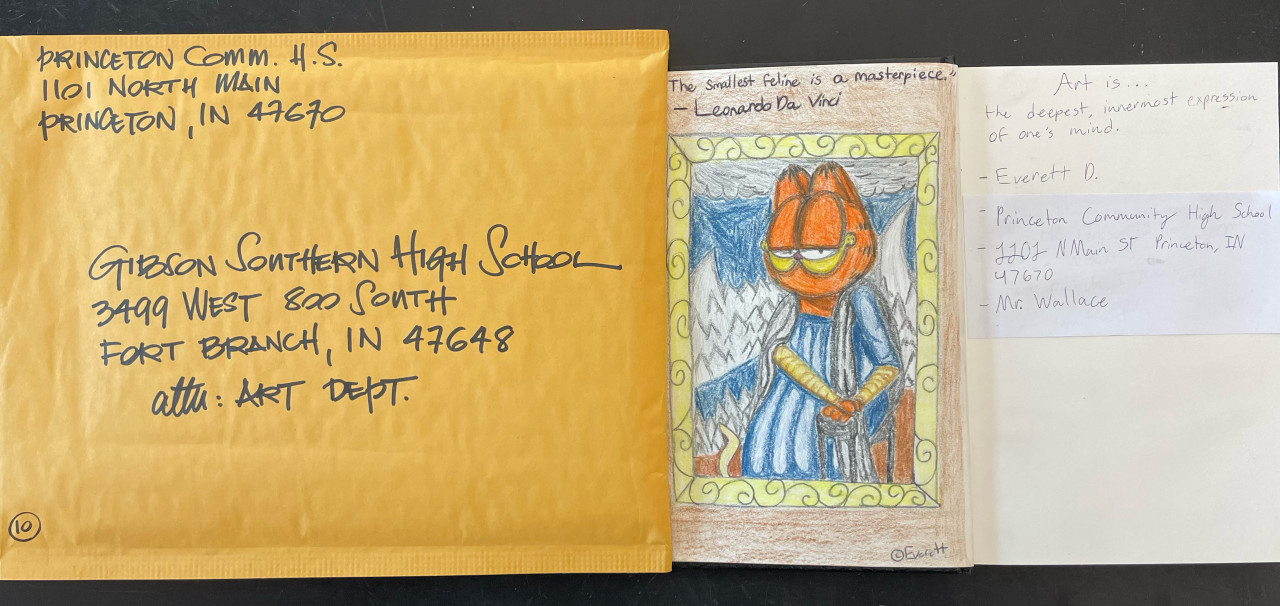 PRINCETON COMM. H.S.
1101 NORTH MAIN
PRINCETON, IN 47670
GIBSON SOUTHERN HIGH SCHOOL
3499 WEST 800 SOUTH
FORT BRANCH, IN 47648
attn: ART DEPT.
10
The smallest feline is a masterpiece."
- Leonardo Da Vinci
©Everett
Art is...
the deepest, innermost expression
of one's mind.
- Everett D.
- Princeton Community High School
- 1101 N Main St Princeton, IN
47670
- Mr. Wallace